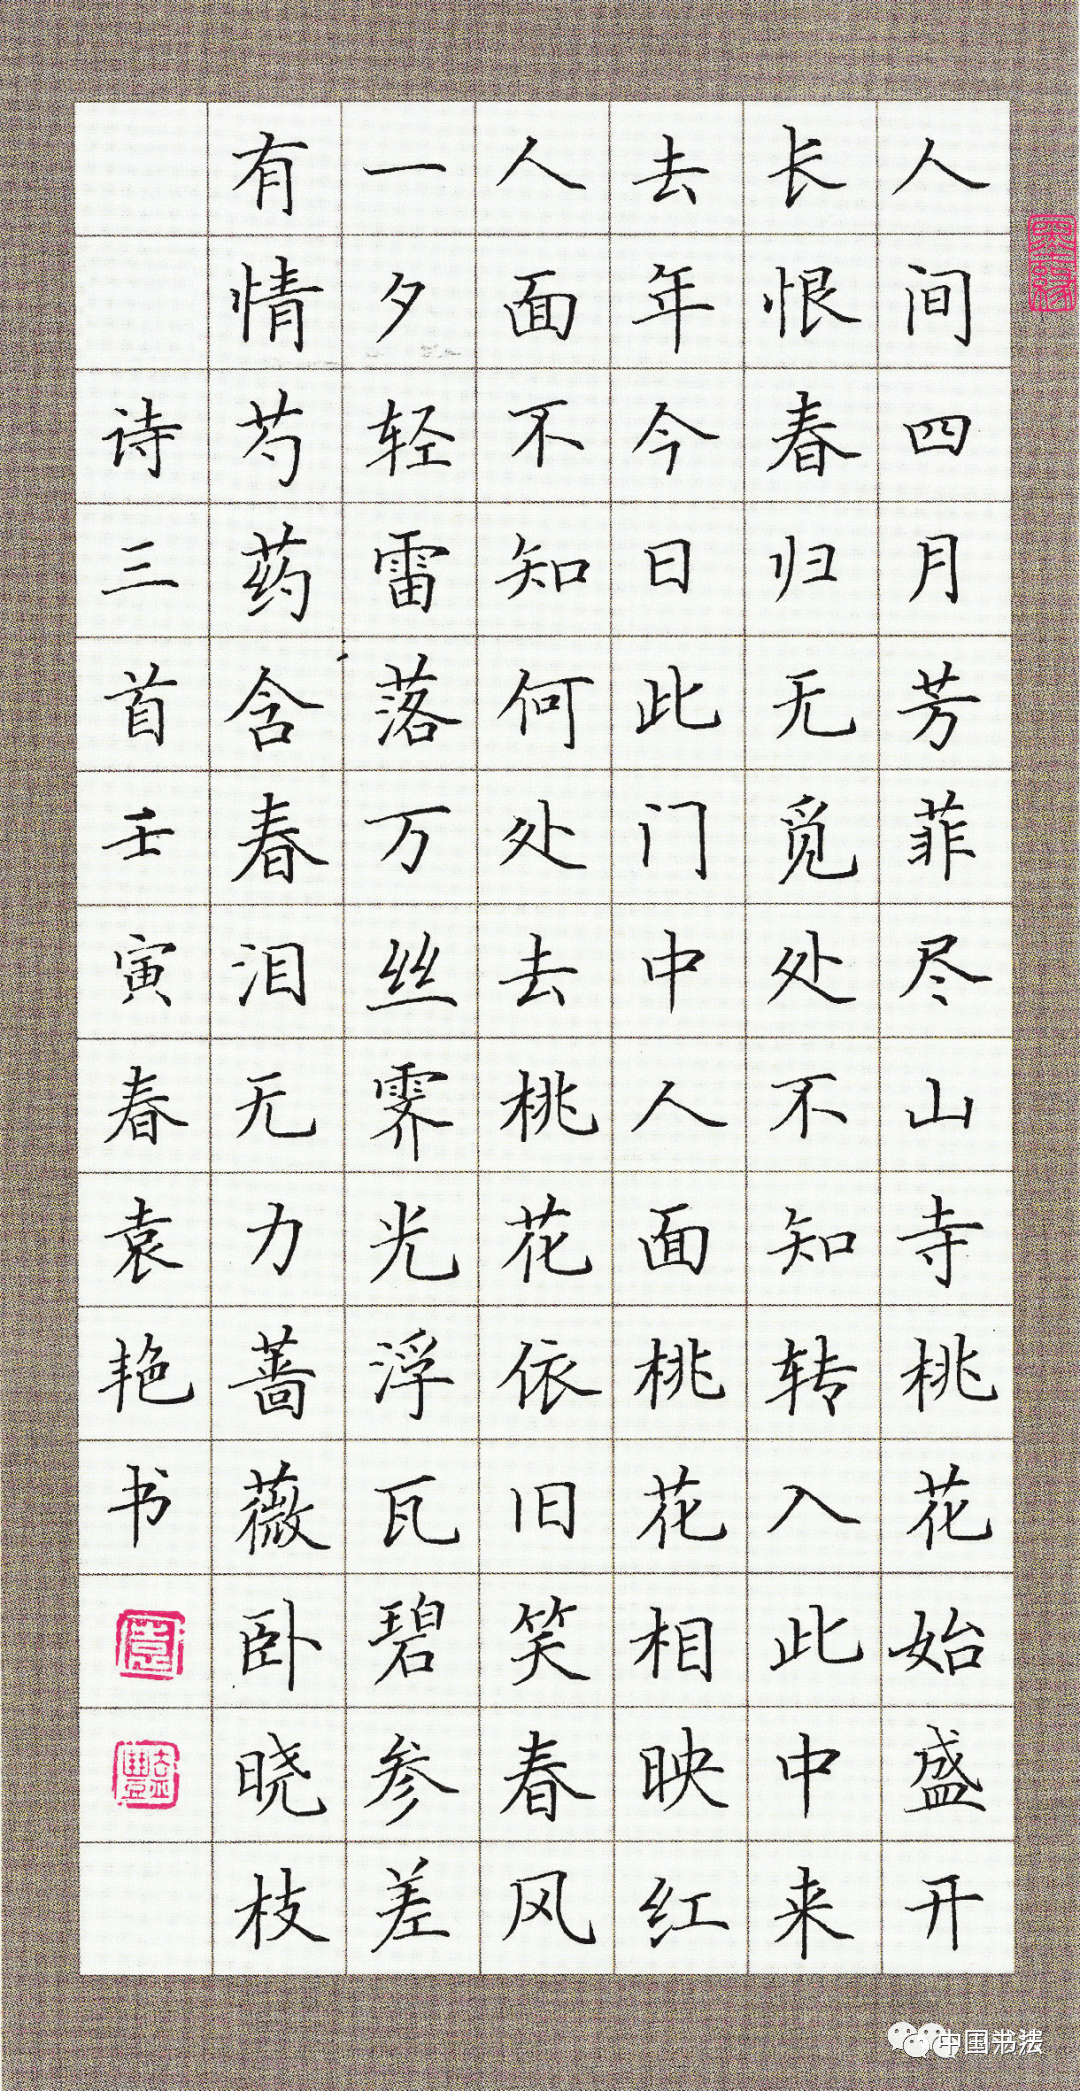 人间四月芳菲尽山寺桃花始盛开
长恨春归无觅处不知转入此中来
去年今日此门中人面桃花相映红
人面不知何处去桃花依旧笑春风
一夕轻雷落万丝霁光浮瓦碧参差
有情芍药含春泪无力蔷薇卧晓枝
诗三首壬寅春袁艳书
中国书法